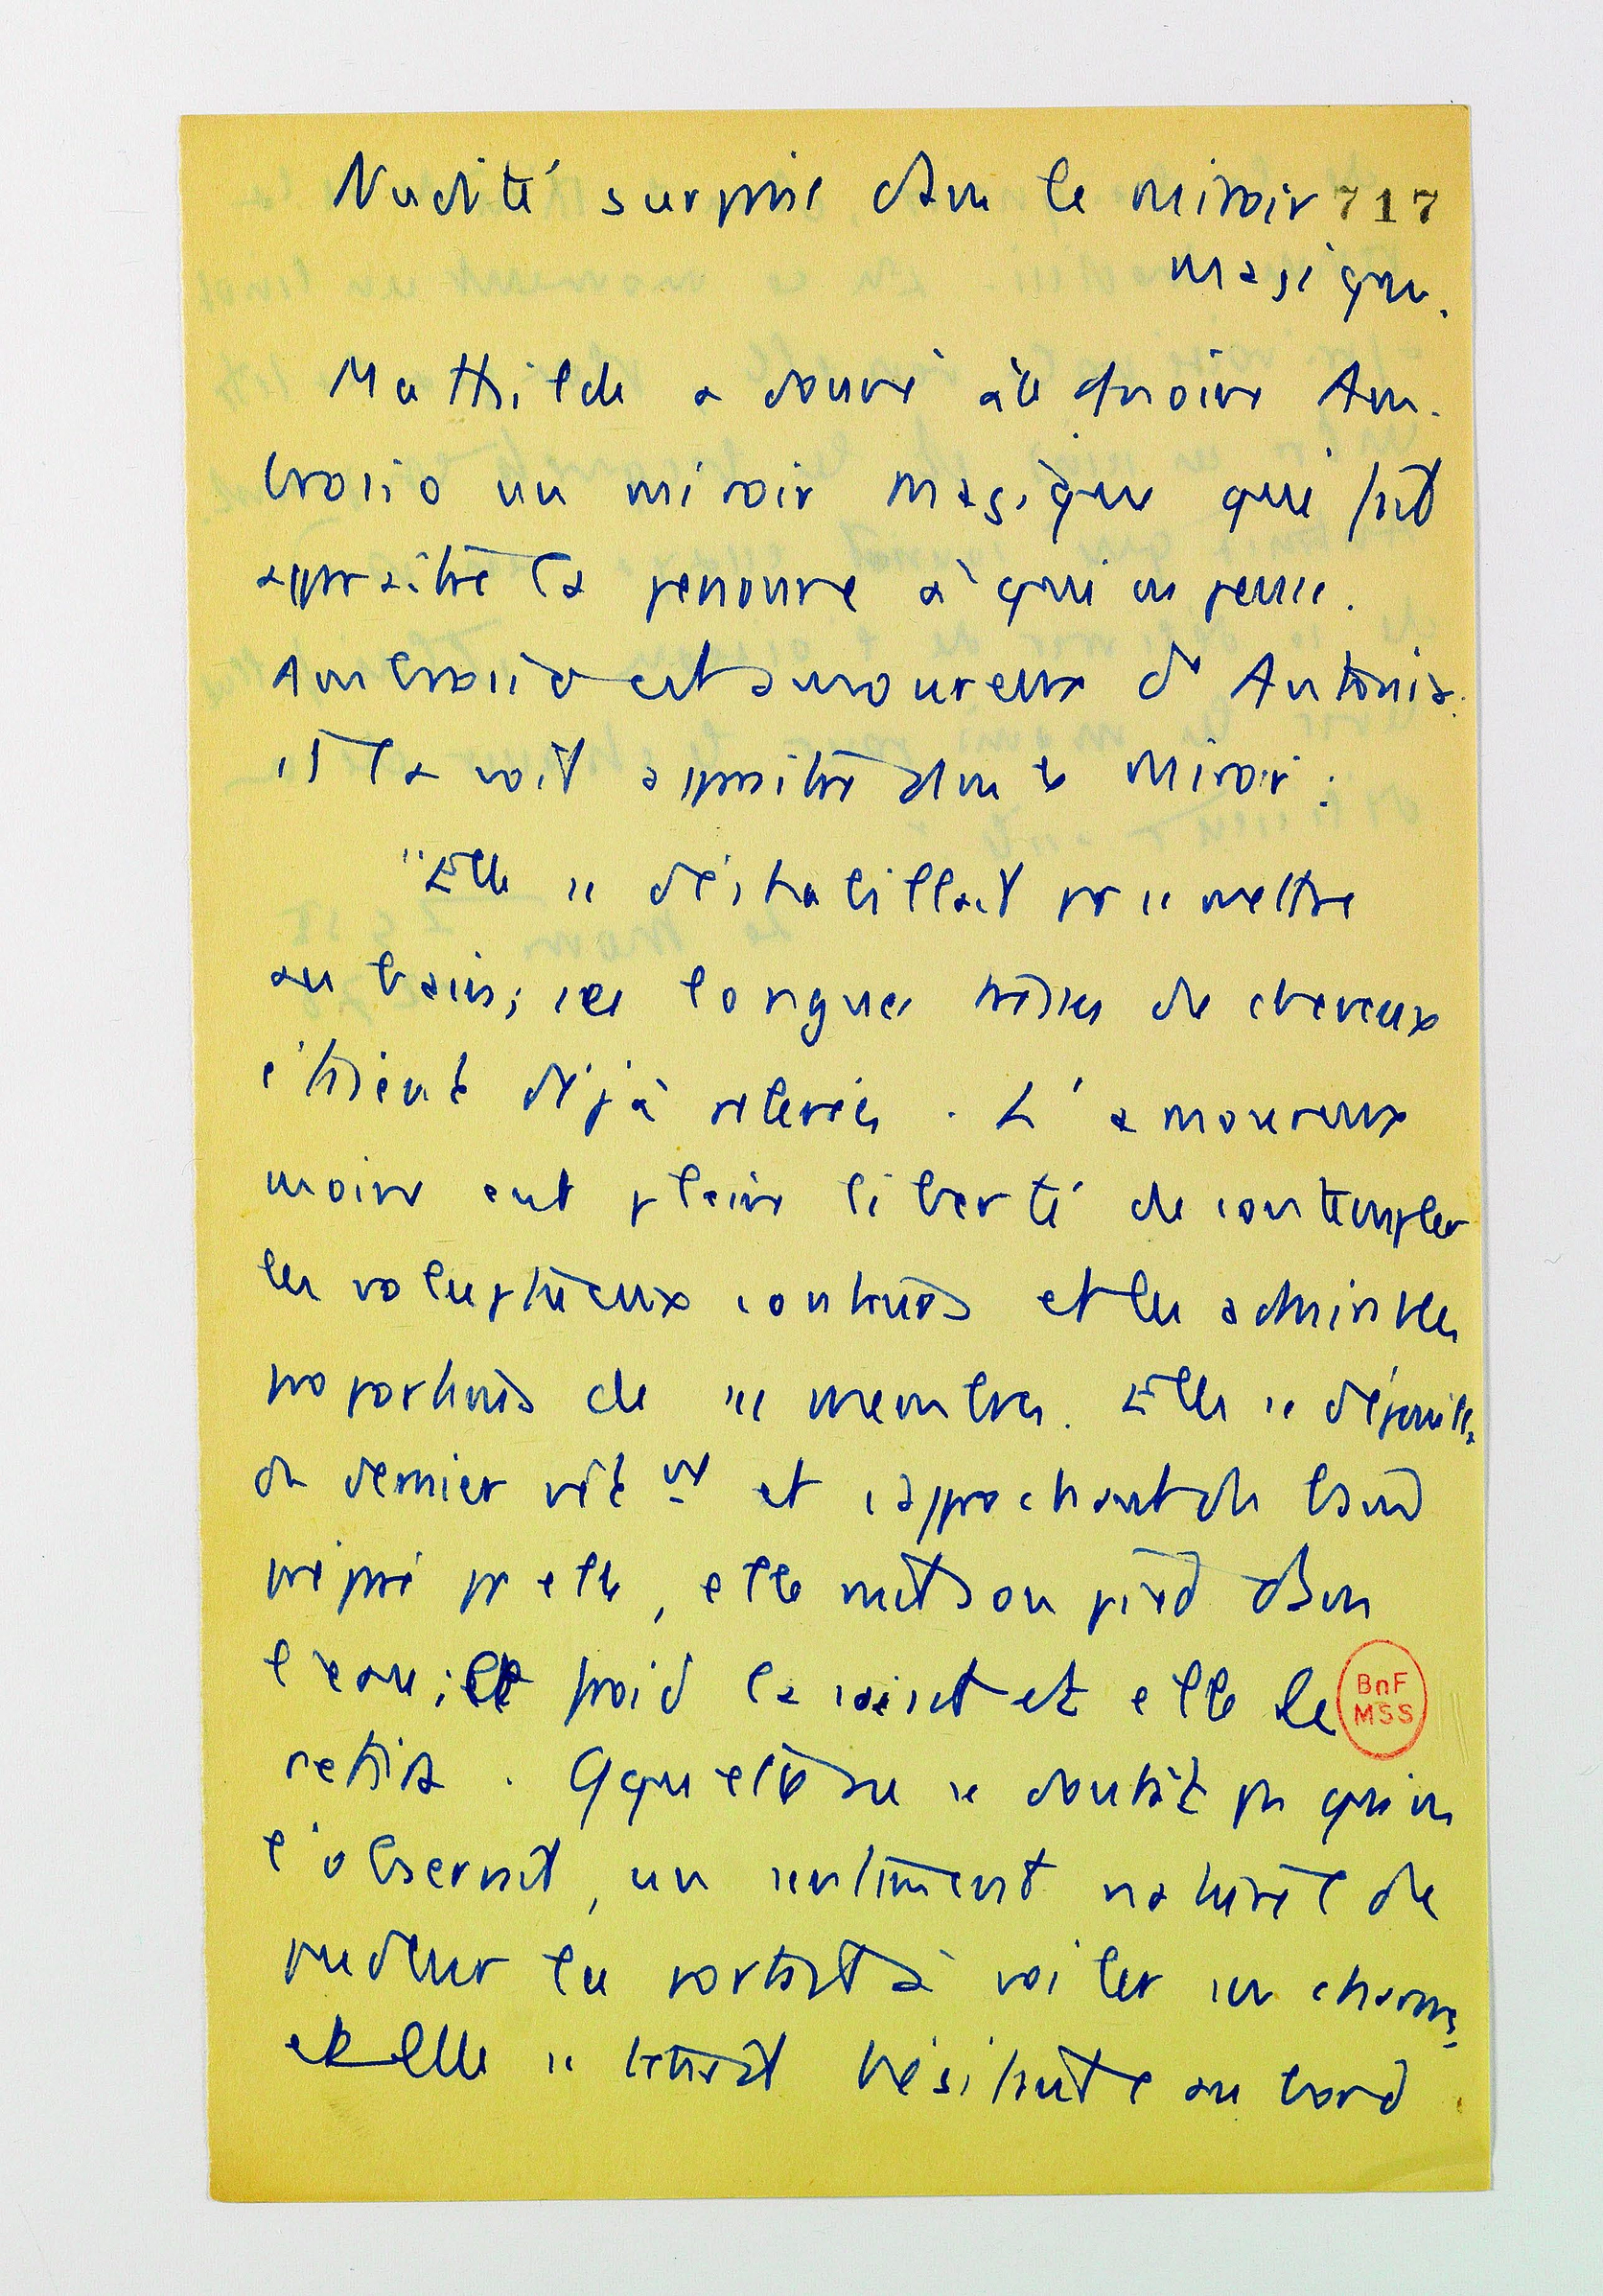 Nudité surprise dans le miroir 717
magique.
Mathilde a donné à le moine Am-
brosio un miroir magique qui fait
apparaître la personne à qui on pense.
Ambrosio est amoureux d'Antonia.
il la voit apparaître dans le miroir :
"Elle se déshabillait pr se mettre
au bain; ses longues tresses de cheveux
étaient déjà relevées. L'amoureux
moine eut pleine liberté de contempler
les voluptueux contours et les admirables
proportions de ses membres. Elle se dépouilla
du dernier vêt nt et s'approchant du bain
préparé pr elle, elle mit son pied dans
l'eau; le froid la saisit et elle le
retira. Qque elle ne se doutât pas qu'on
l'observait, un sentiment naturel de
pudeur la portait à voiler ses charmes,
et elle se tenait hésitante au bord
BnF
MSS